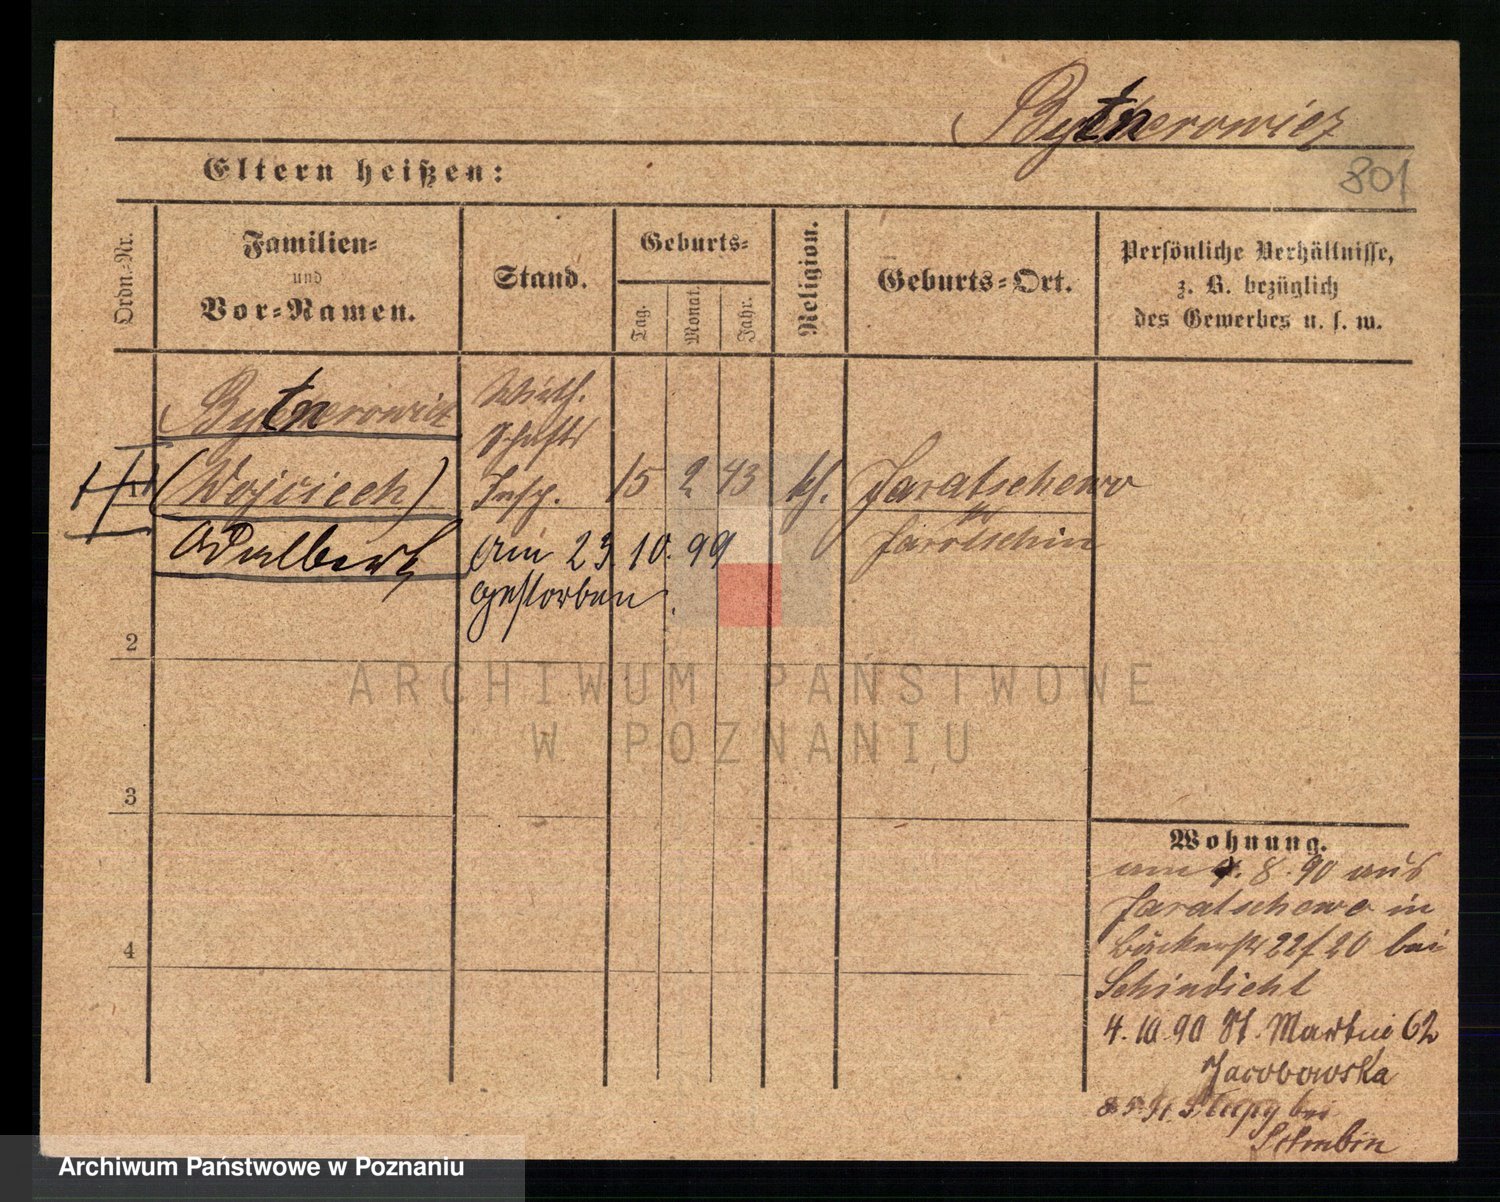 Bytnerowicz
801
Eltern heißen:
Ordn.-Nr.
Familien-
und
Vor-Namen.
Stand.
Geburts-
Tag.
Monat.
Jahr.
Religion.
Geburts-Ort.
Persönliche Verhältnisse,
z. B. bezüglich
des Gewerbes u. s. w.
Bytnerowicz
Wirth.
schafts
1 (Wojciech) Insp. 15 2 43 kth. Jaratschewo
Adalbert am 23 10. 99 Jarotschin
gestorben.
2
3
4
Wohnung.
am 4. 8. 90 aus
Jaratschewo in
Bäckerstr 22/20 bei
Schindicht
4. 10. 90 St. Martin 62
Jacobowska
bei
ARCHIWUM PAŃSTWOWE
W POZNANIU
Archiwum Państwowe w Poznaniu